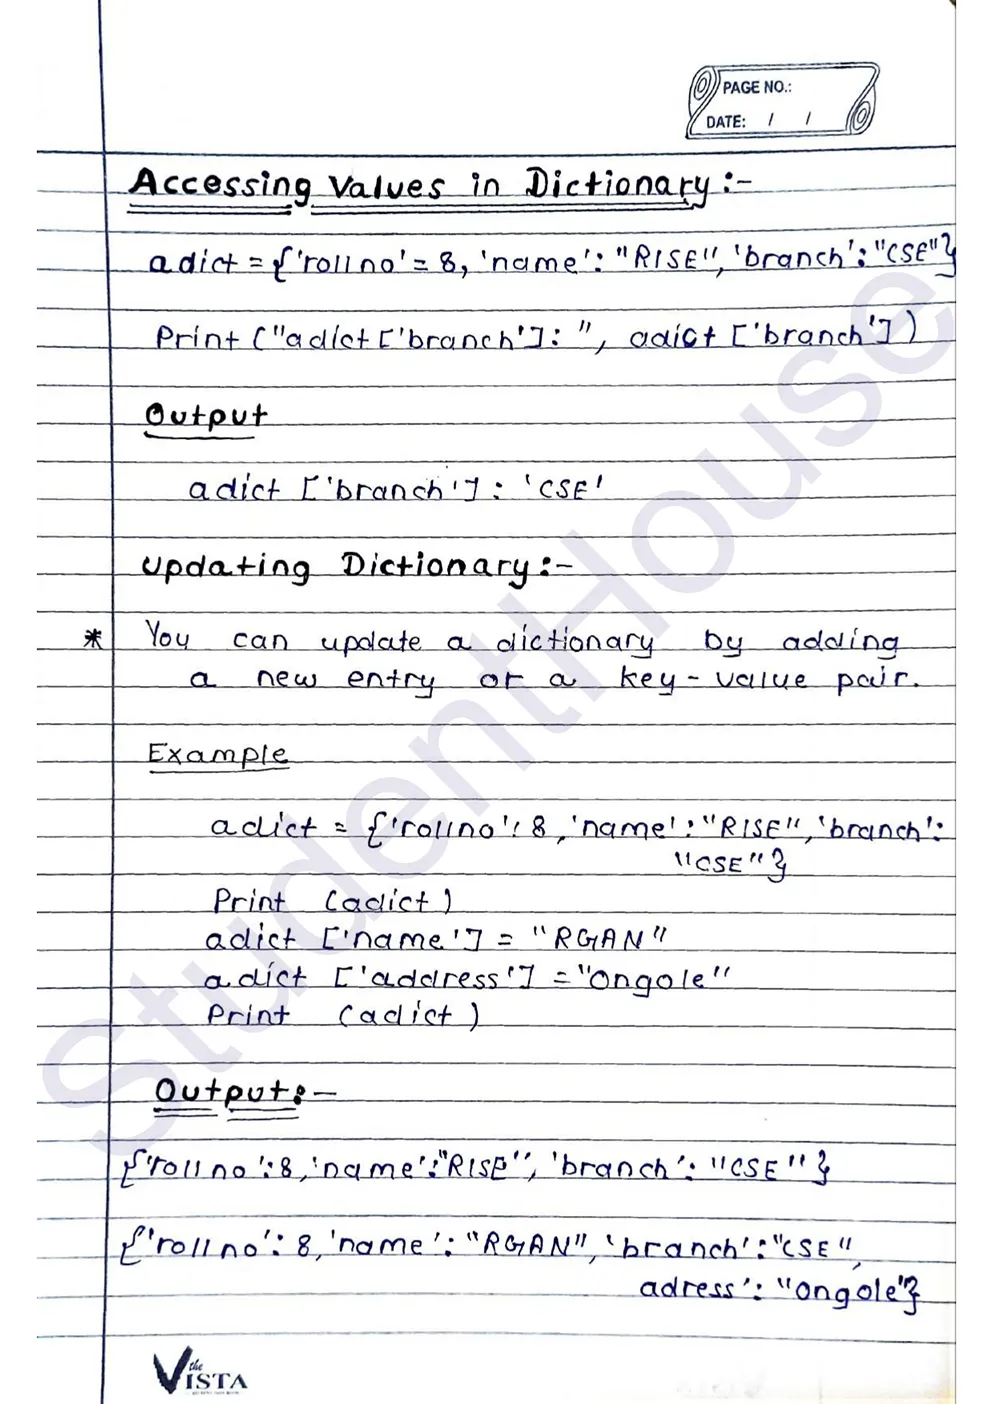 PAGE NO.:
DATE: / /
Accessing Values in Dictionary :-
adict = {'rollno' = 8, 'name' : "RISE", 'branch' : "CSE"}
Print ("adict ['branch'] : ", adict ['branch'])
Output
adict ['branch'] : 'CSE'
Updating Dictionary :-
* You can update a dictionary by adding
a new entry or a key - value pair.
Example
adict = {'rollno' : 8, 'name' : "RISE", 'branch' :
"CSE"}
Print (adict)
adict ['name'] = "RGAN"
adict ['address'] = "Ongole"
Print (adict)
Output :-
{'rollno' : 8, 'name' : "RISE", 'branch' : "CSE"}
{'rollno' : 8, 'name' : "RGAN", 'branch' : "CSE",
adress' : "Ongole"}
StudentHouse
the
VISTA